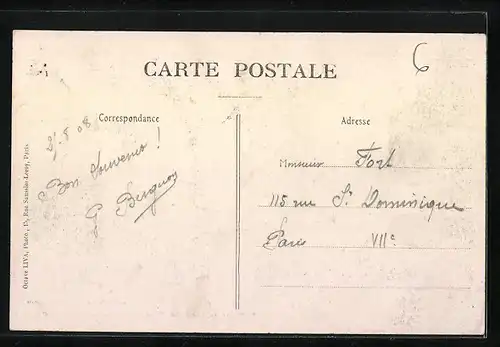 6
CARTE POSTALE
Correspondance
Adresse
5-8 08
Bon Souvenir !
Monsieur Fort
115 rue St Dominique
Paris VIIe
Octave LIVA, Photo., 15, Rue Samson-Levey, Paris.